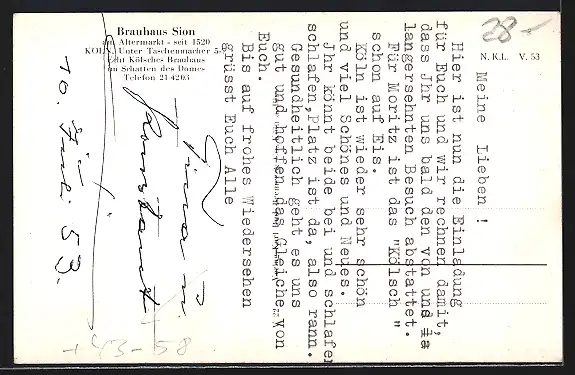 Brauhaus Sion
am Altermarkt - seit 1520
KÖLN, Unter Taschenmacher 5-7
Echt Kölsches Brauhaus
im Schatten des Domes
Telefon 21 42 03
28.-
N. K. L. V. 53
Meine Lieben !
Hier ist nun die Einladung
für Euch und wir rechnen damit,
dass Jhr uns bald den von uns
langersehnten Besuch abstattet.
Für Moritz ist das "Kölsch "
schon auf Eis.
Köln ist wieder sehr schön
und viel Schönes und Neues.
Jhr könnt beide bei und schlafen
schlafen,Platz ist da, also rann.
Gesundheitlich geht es uns
gut und hoffen das Gleiche von
Euch.
Bis auf frohes Wiedersehen
grüsst Euch Alle
10. 53.
+ 43-58